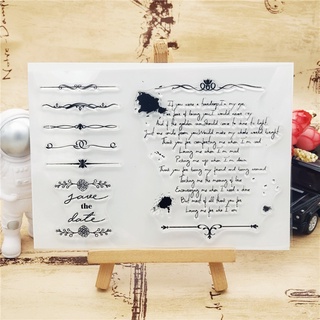 save
the
date
If you were a teardrop in my eye
For fear of losing you I would never cry
And if the golden sun should cease to shine its light
Just one smile from you would make my whole world bright
Thank you for comforting me when I'm sad
Loving me when I'm mad
Picking me up when I'm down
Thank you for being my friend and being around
Teaching me the meaning of love
Encouraging me when I need a shove
But most of all thank you for
Loving me for who I am